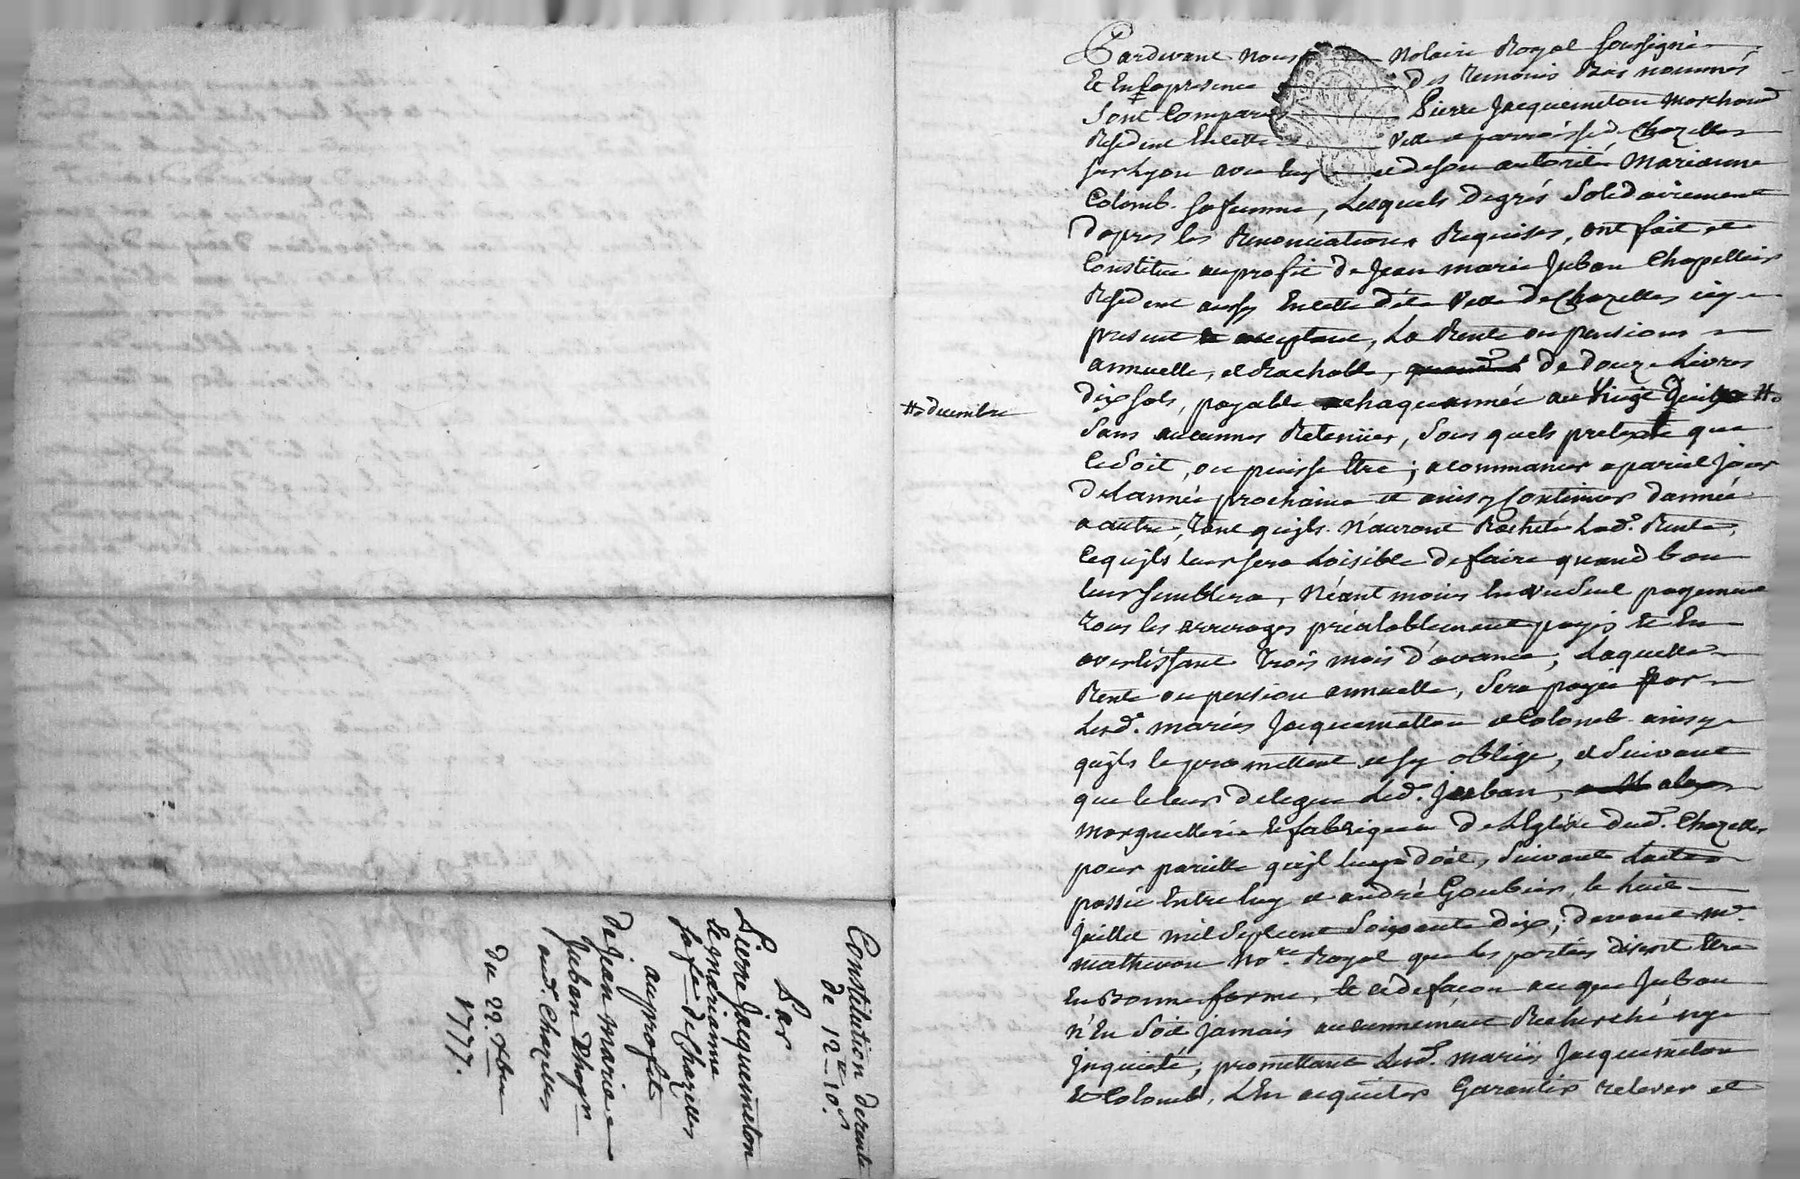 Pardevant nous Notaire Royal soussigné
Et En la presence des temoins Bas nommés
Sont Comparus Pierre Jacquemeton Marchand
Résident En cette Ville et parroisse de Chazelles
sur Lyon avec luy et de son autorité Marianne
Colomb sa femme, Lesquels de grés Solidairement
d'apres les Renonciations Requises, ont fait et
Constitué au profit de Jean marie Juban Chapellier
Résident aussy En cette dite Ville de Chazelles icy
present et acceptant, La Rente ou pension
annuelle, et Rachable, de douze Livres
dix sols, payable chaque année au Vingt Deux #
# decembre
Sans aucunnes Retenües, Sous quels pretexte que
Ce Soit, ou puisse Etre; a commancer a pareil jour
de Lannée prochaine et ainsy Continuer d'année
a autre, Tant quils N'auront Racheté Lad.e Rente,
Ce quils leur sera Loisible de faire quand bon
leur semblera, Néant moins En un Seul payement
Tous les arrerages préalablement payés Et En
avertissant Trois mois d'avance; Laquelle
Rente ou pension annuelle, Sera payée par
Lesd. mariés Jacquemetton et Colomb ainsy
quils le promettent et sy oblige, et Suivant
que le leur delegue Led. Juban, a la
Marguellerie Et fabrique de L'Eglise dud. Chazelles
pour pareille quil luy a doit, Suivant Lacte
passée Entre luy et andré Goubier, le huit
Juillet mil Sept Cent Soixante dix, devant M.e
mathevon No.re Royal que les parties disent Etre
En Bonne forme, Et de façon au que Juban
n'En Soit Jamais aucunnement Recherché ny
Jnquiété; promettant Lesd. mariés Jacquemeton
Et Colomb, L'En acquitter Garantir relever et
Constitution de rente
de 12 # 10 s.
Par
Pierre Jaquemeton
et marianne
sa fe de Chazelles
au profit
de Jean marie
Juban
aud. Chazelles
du 22. Xbre
1777.